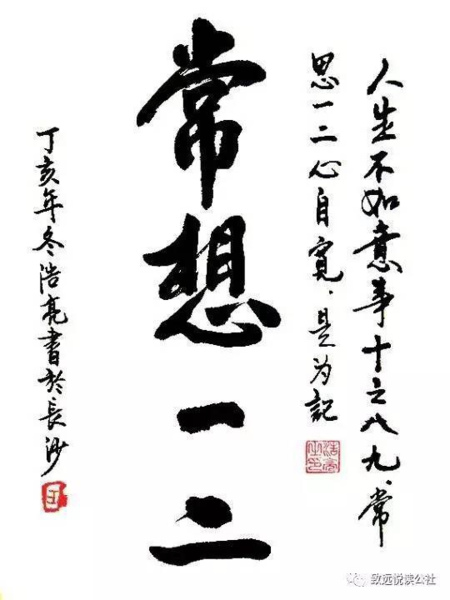 人生不如意事十之八九、常
思一二心自寬、是为記
常想一二
丁亥年冬浩亮書於長沙
致远悦读公社